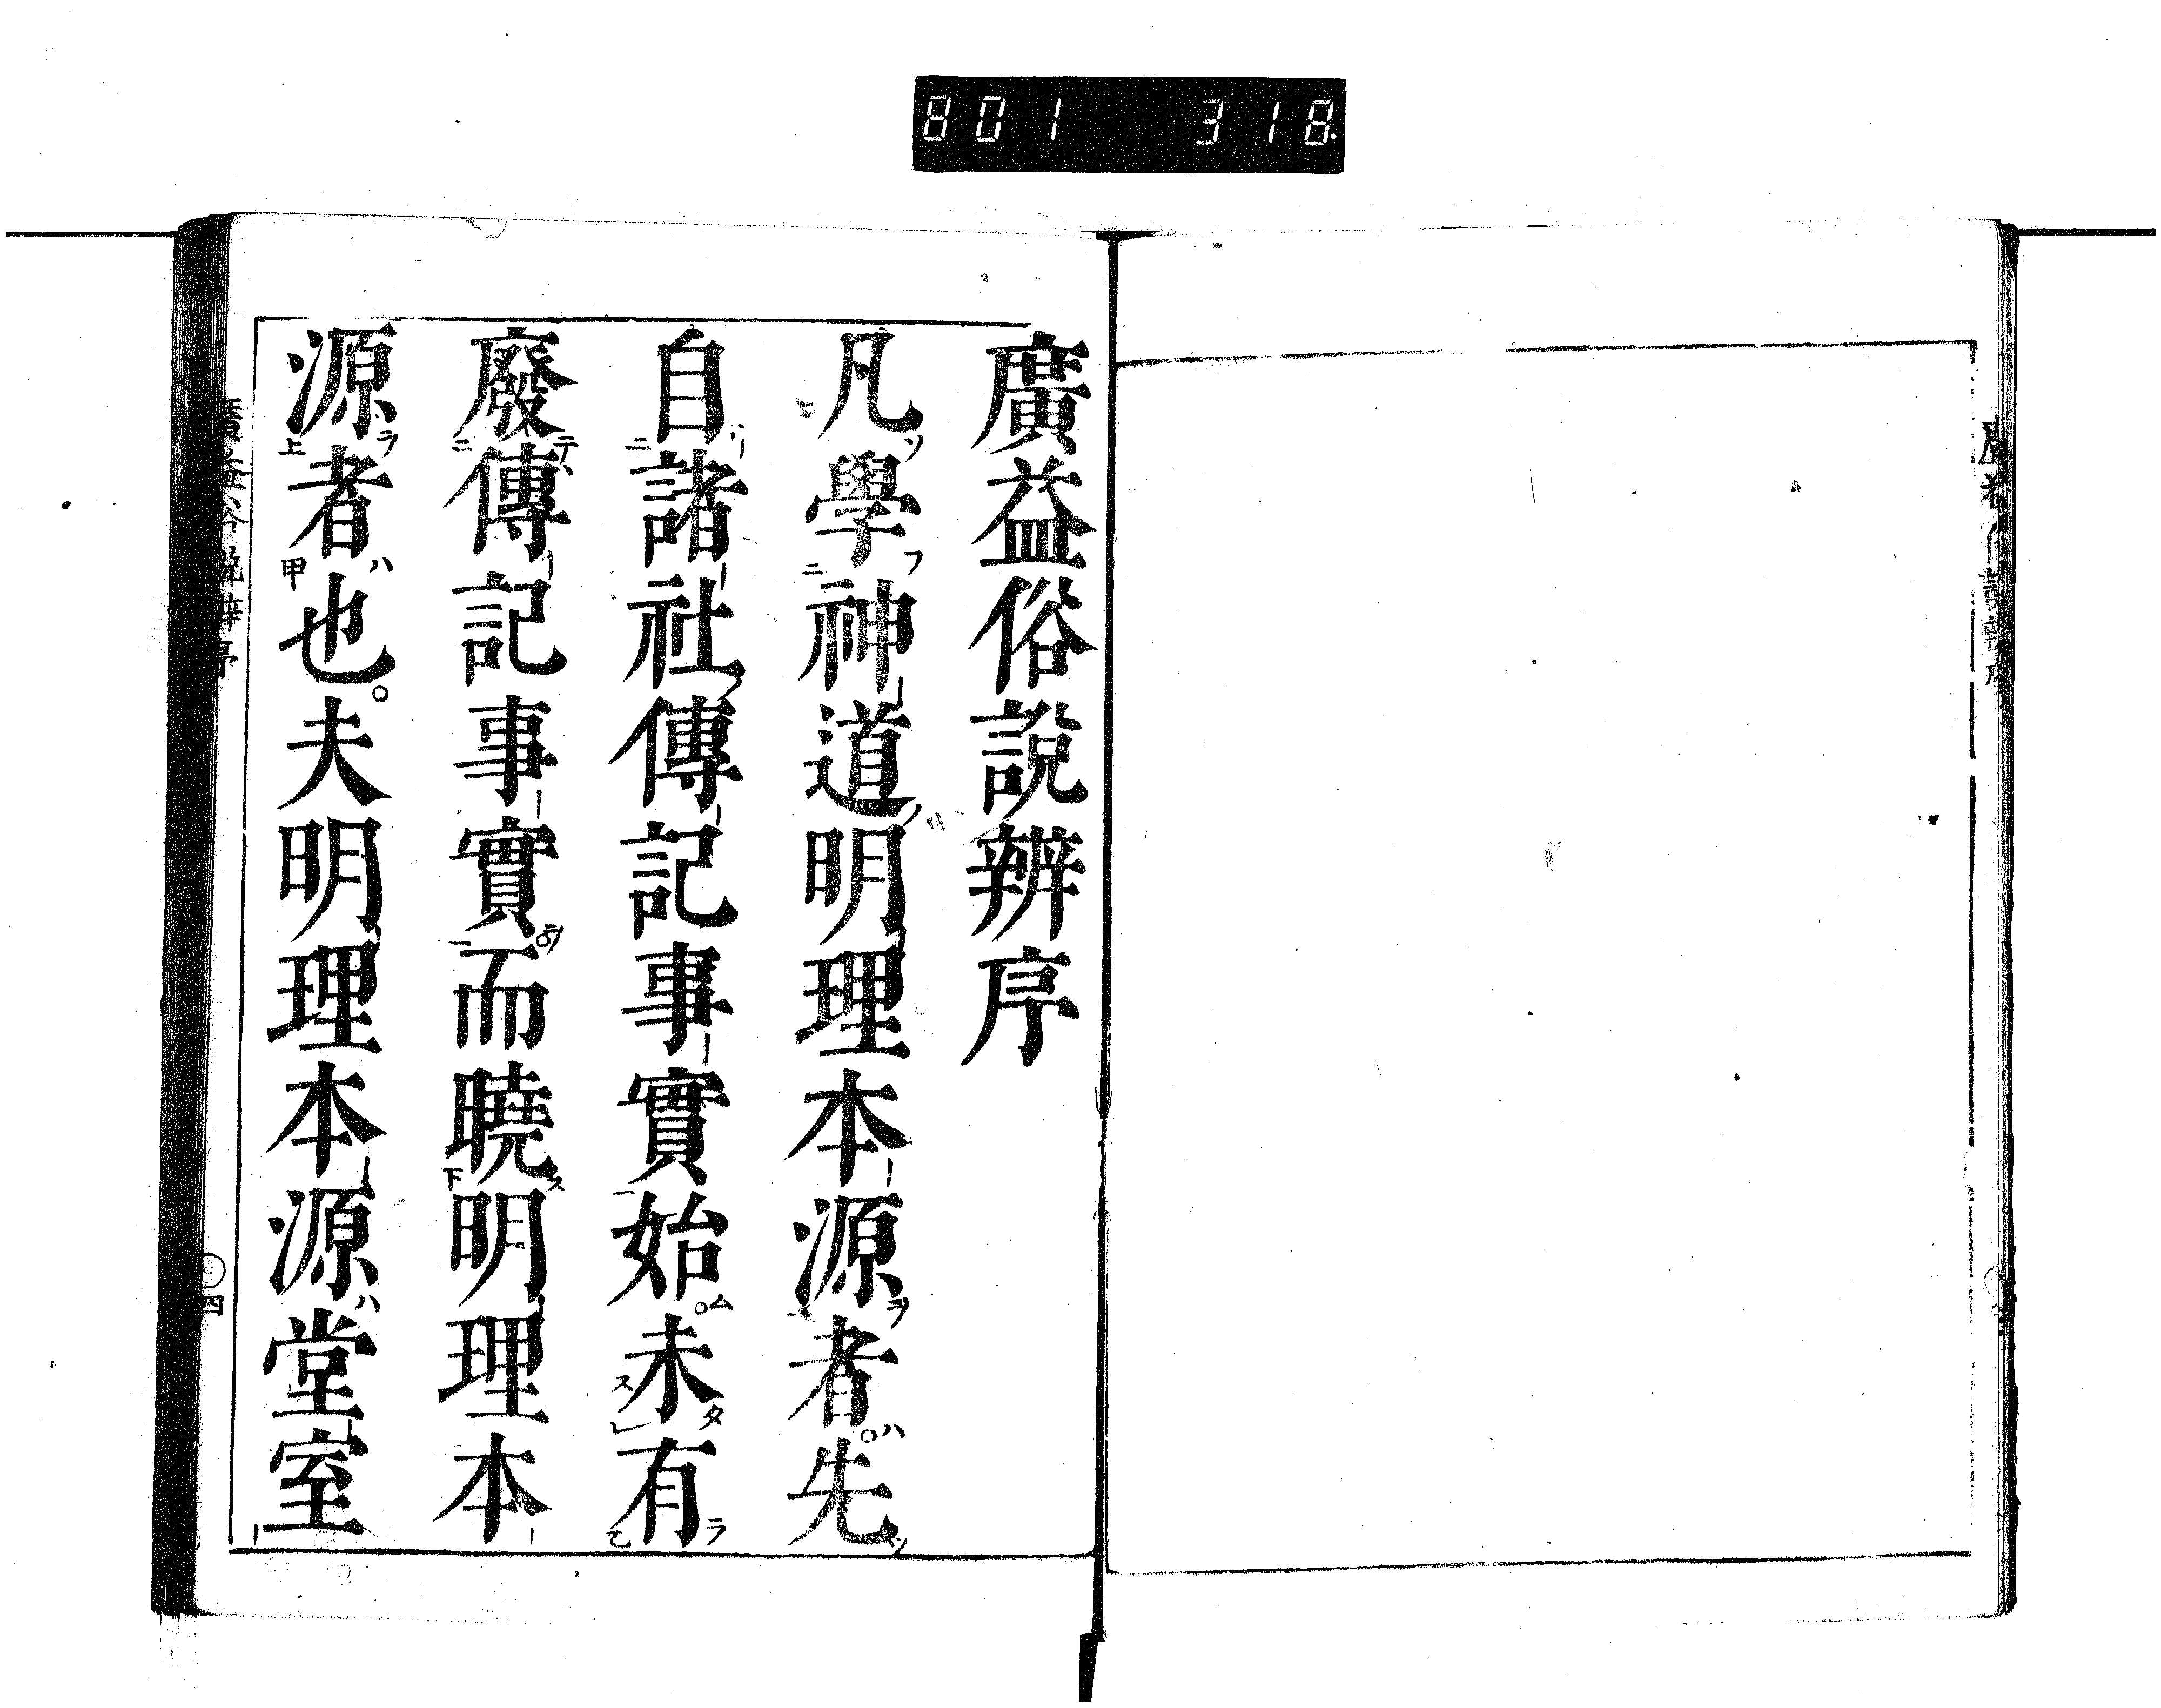 801 318
廣益俗說辨序
凡學神道明理本源者先
自諸社傳記事實始未有
廢傳記事實而曉明理本
源者也夫明理本源堂室
四